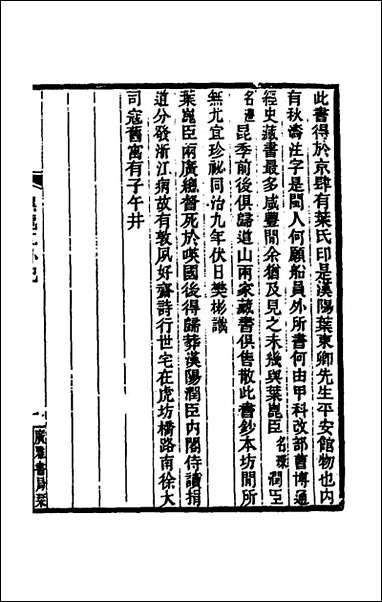 此書得於京肆有葉氏印是漢陽葉東卿先生平安館物也內
有秋濤注字是閩人何願船員外所書何由甲科改部曹博通
經史藏書最多咸豐間余猶及見之未幾與葉崑臣名琛潤臣
名灃昆季前後俱歸道山兩家藏書俱售散此書鈔本坊間所
無尤宜珍祕同治九年伏日樊彬識
葉崑臣兩廣總督死於嘆國後得歸葬漢陽潤臣內閣侍讀捐
道分發浙江病故有敦夙好齋詩行世宅在虎坊橋路南徐大
司寇舊寓有子午井
廣雅書局栞